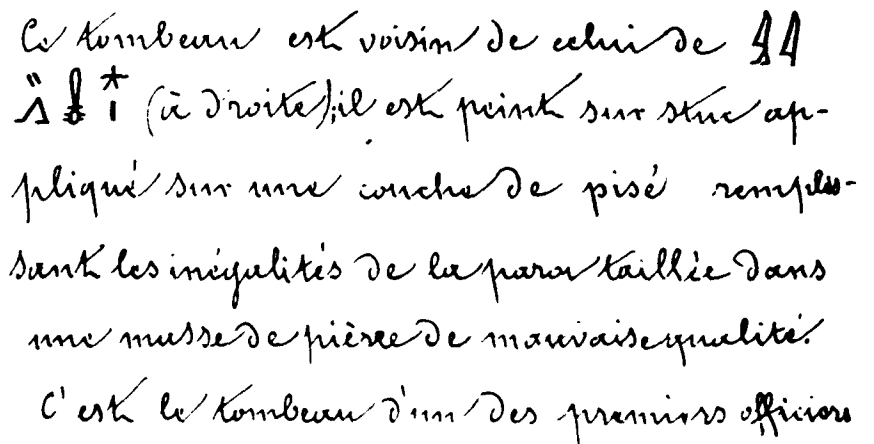 Ce tombeau est voisin de celui de
(à droite); il est peint sur stuc ap-
pliqué sur une couche de pisé remplis-
sant les inégalités de la paroi taillée dans
une masse de pierre de mauvaise qualité.
C'est le tombeau d'un des premiers officiers